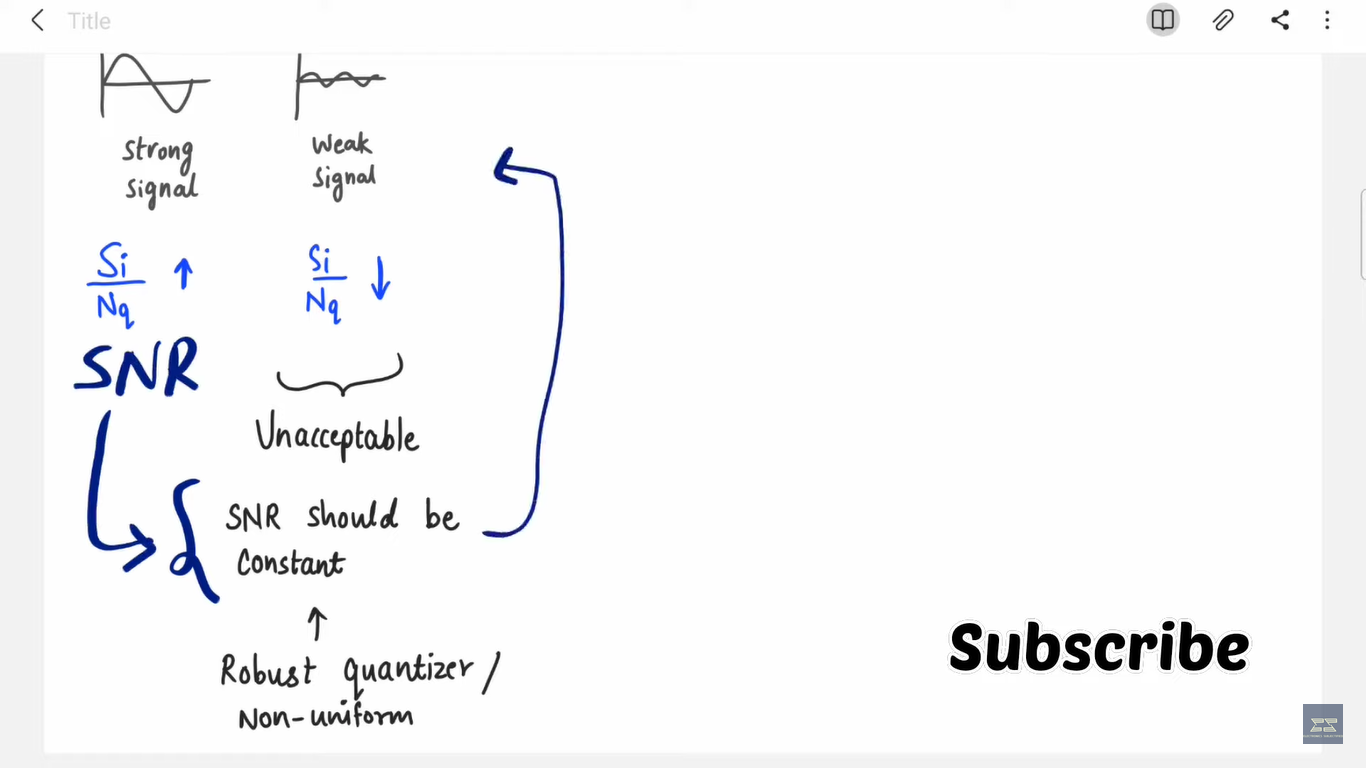 Title
Strong
Signal
Weak
Signal
Si
Nq
Si
Nq
SNR
Unacceptable
SNR should be
Constant
Robust quantizer /
Non-uniform
Subscribe